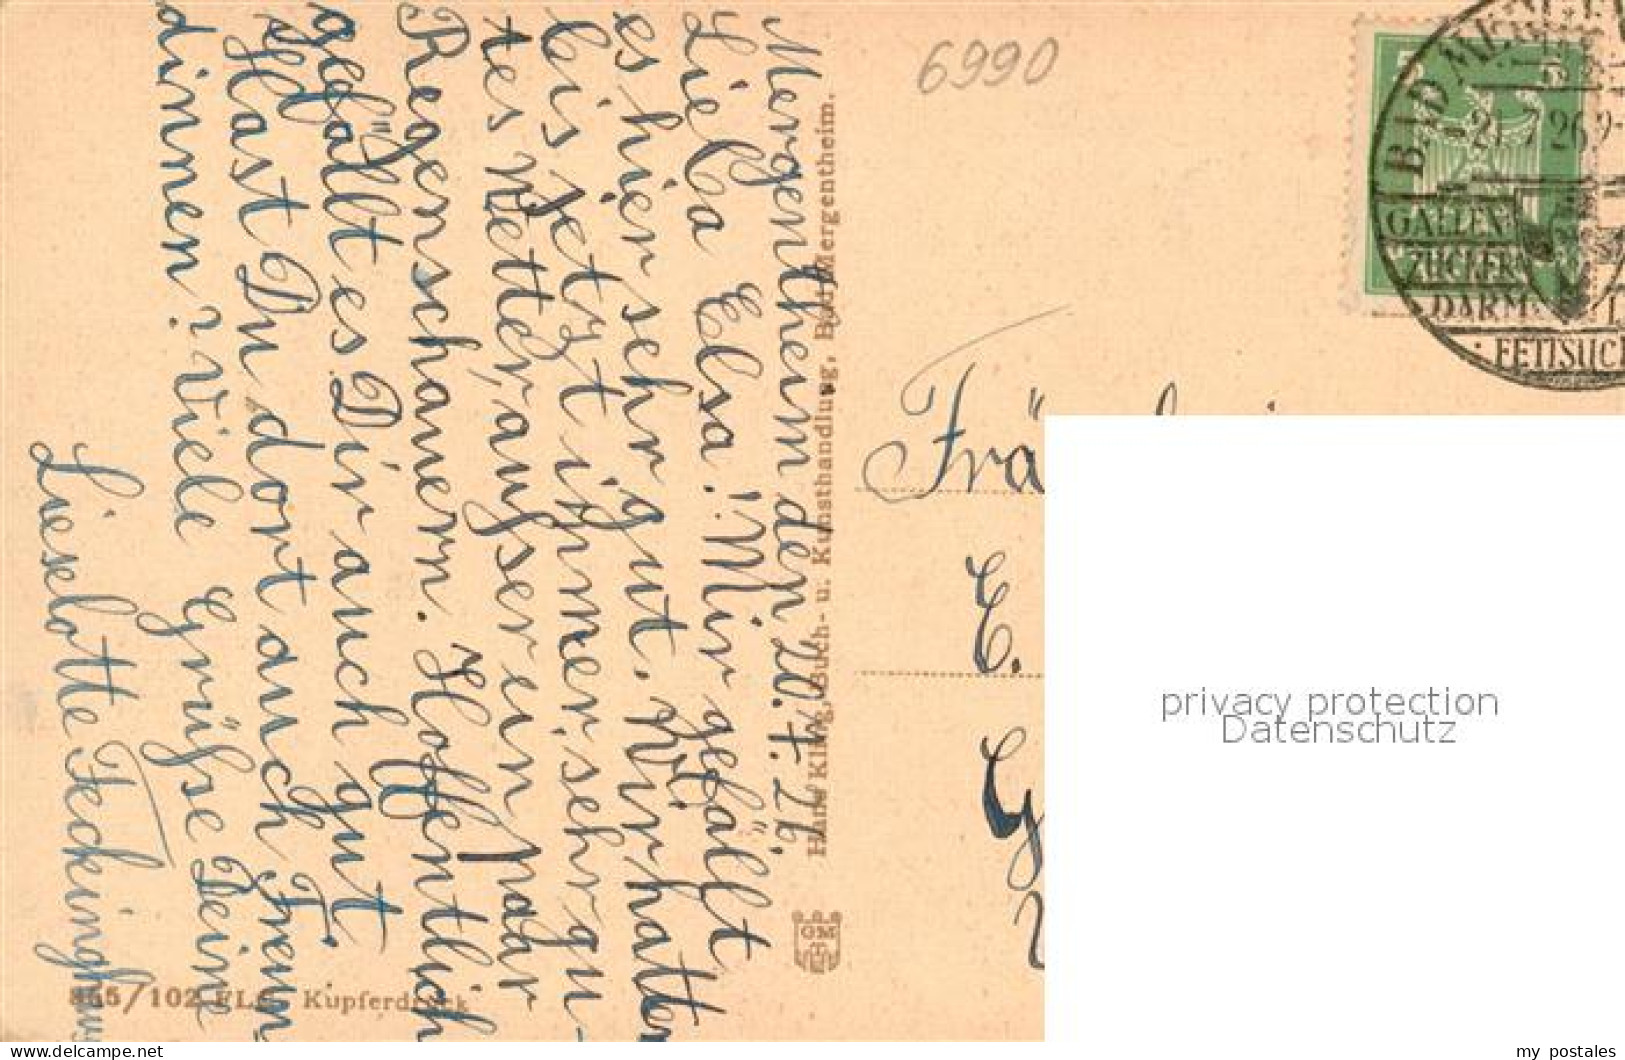 Mergentheim den 20.7.26.
Liebe Elsa! Mir gefällt
es hier sehr gut. Wir hatten
bis jetzt immer sehr gu-
tes Wetter, außer ein paar
Regenschauern. Hoffentlich
gefällt es Dir auch gut.
Hast Du dort auch Freun
dinnen? Viele Grüße Deine
Lieselotte
865/102 Kupferdruck
Hans Kling, Buch- u. Kunsthandlung, Bad Mergentheim.
GM
6990
BAD
21.7.26.9-
GALLEN
ZUCKER
DARM
FETTSUCH
Frä
E.
G
privacy protection
Datenschutz
delcampe.net
my_postales